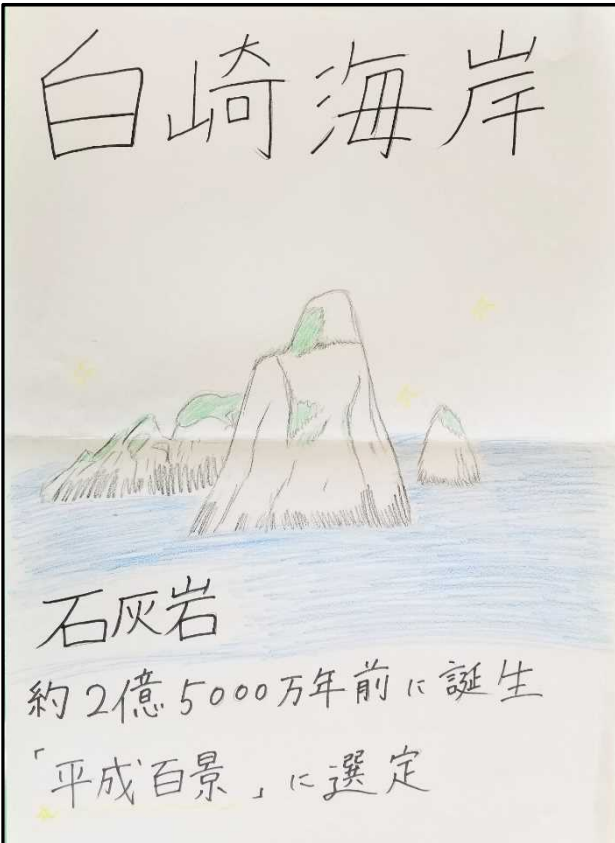 白崎海岸
石灰岩
約2億5000万年前に誕生
「平成百景」に選定